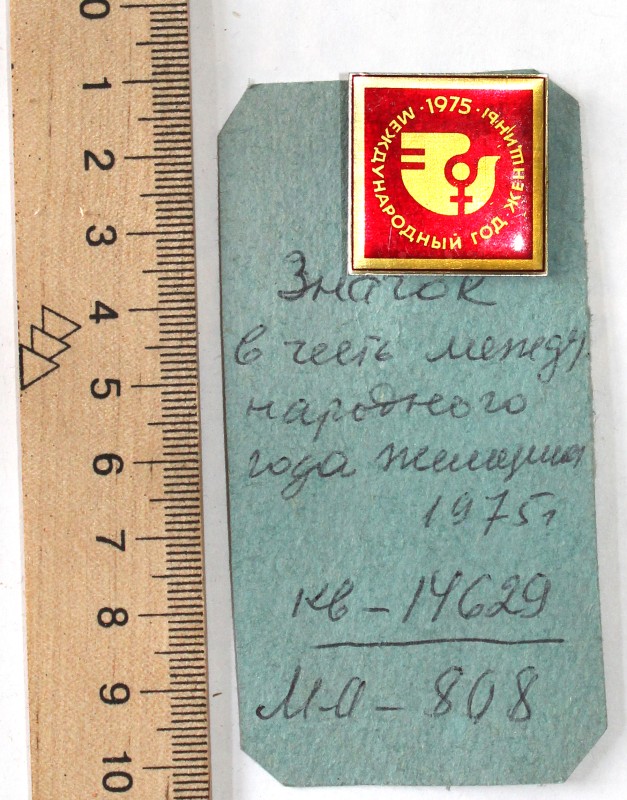 0
1
2
3
4
5
6
7
8
9
10
· 1975 ·
МЕЖДУНАРОДНЫЙ ГОД ЖЕНЩИНЫ
Значок
в честь между
народного
года женщины
1975г
кв - 14629
М-О - 808